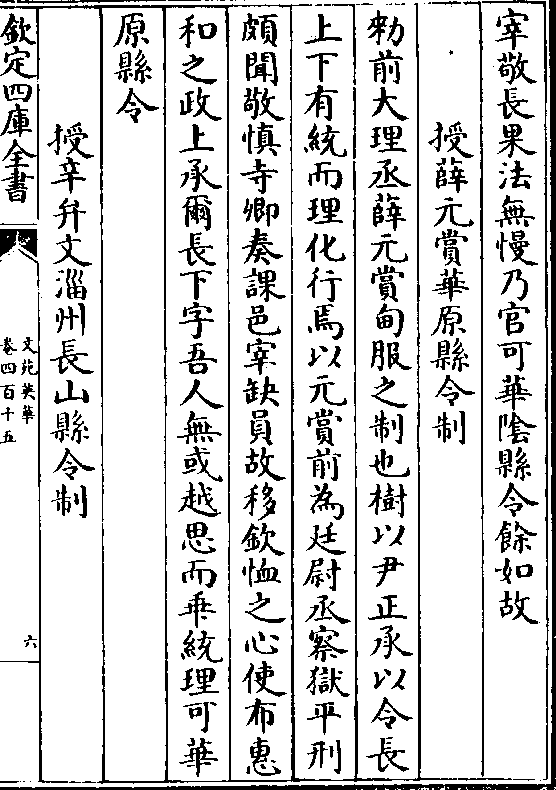 宰敬長果法無慢乃官可華隂縣令餘如故
授薛元賞華原縣令制
勑前大理丞薛元賞甸服之制也樹以尹正承以令長
上下有統而理化行焉以元賞前為廷尉丞察獄平刑
頗聞敬慎寺卿奏課邑宰缺員故移欽恤之心使布惠
和之政上承爾長下字吾人無或越思而乘統理可華
原縣令
授辛弁文淄州長山縣令制
欽定四庫全書
文苑英華
卷四百十五
六